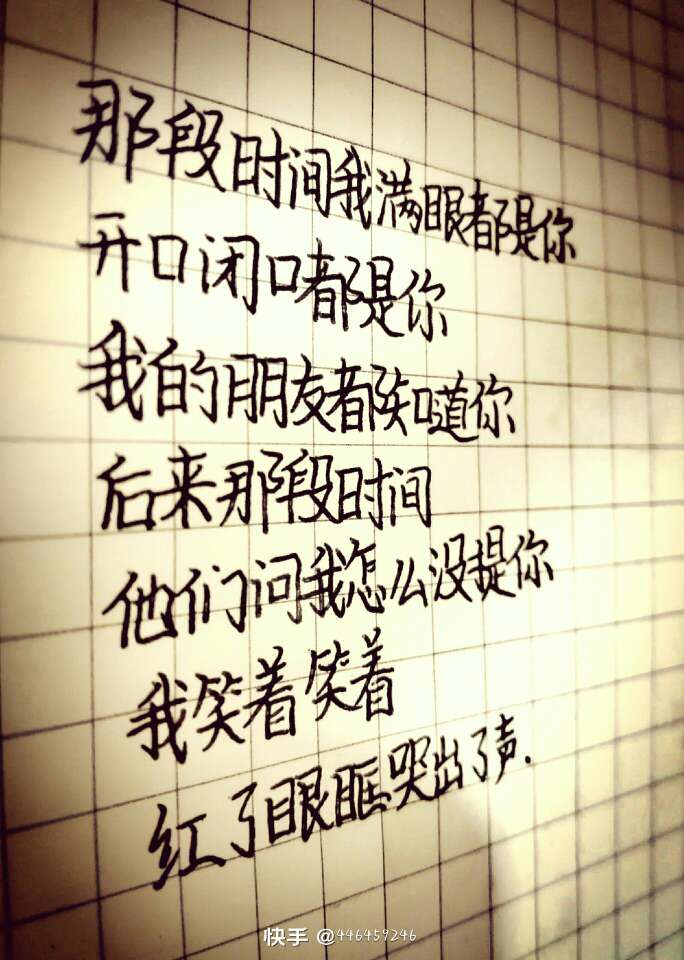 那段时间我满眼都是你
开口闭口都是你
我的朋友都知道你
后来那段时间
他们问我怎么没提你
我笑着笑着
红了眼眶哭出了声.
快手 @446459246